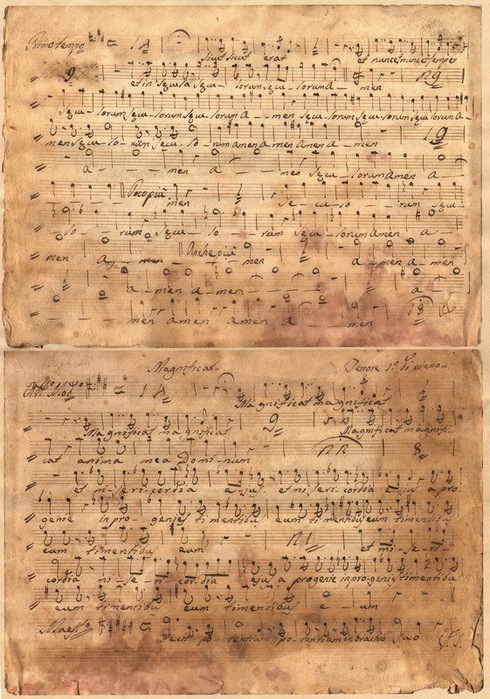 Primo tempo
Sicut sicut erat et nunc et nunc et semper
et in secula secu_lorum secu_lorum A_men
secu_lorum secu_lorum secu_lorum A_men secu_lorum secu_lorum secu_lorum A_
men secu_lo_rum secu_lorum amen amen amen A_men
a_men a_men secu_lorum amen a_
Poco più
men se_cu_lo_rum secu_
_lo_rum secu_lo_rum secu_lorum Amen a_
Anche più
men a_men a_men a_men
a_men a_men a_
men amen amen a_men
Magnificat
Tenore 1º
Magnificat magnificat
Magnificat magnificat Magnificat magnifi_
cat anima mea Dominum
et mi_seri_cordia e_jus et mi_seri_cordia ejus a pro
genie in pro_genies timentibus eum timentibus eum timentibus
eum timentibus eum et mi_se_ri_
cordia mi_se_ri_cordia ejus a progenie in pro_genies timentibus
eum timentibus eum timentibus e_um
Maes.º
Fecit po_tentiam po_tentiam in brachio suo